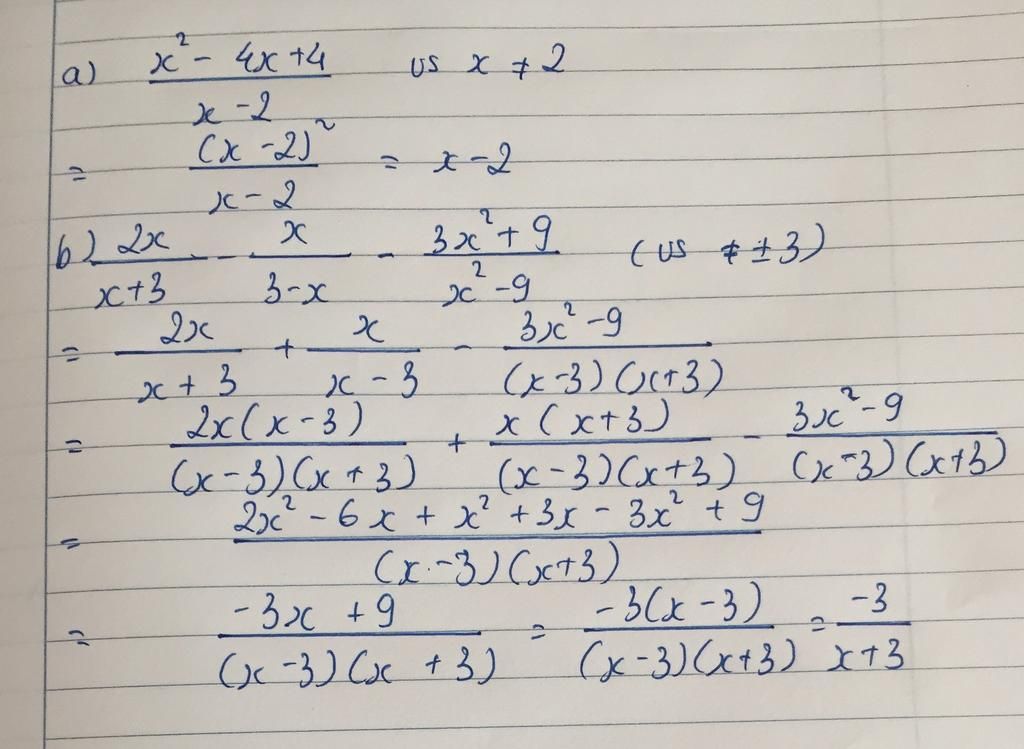 a) (x² - 4x + 4)/(x - 2) vs x ≠ 2
= (x - 2)²/(x - 2) = x - 2
b) 2x/(x + 3) - x/(3 - x) - (3x² + 9)/(x² - 9) (vs ≠ ± 3)
= 2x/(x + 3) + x/(x - 3) - (3x² - 9)/((x - 3)(x + 3))
= 2x(x - 3)/((x - 3)(x + 3)) + x(x + 3)/((x - 3)(x + 3)) - (3x² - 9)/((x - 3)(x + 3))
= (2x² - 6x + x² + 3x - 3x² + 9)/((x - 3)(x + 3))
= (-3x + 9)/((x - 3)(x + 3)) = -3(x - 3)/((x - 3)(x + 3)) = -3/(x + 3)